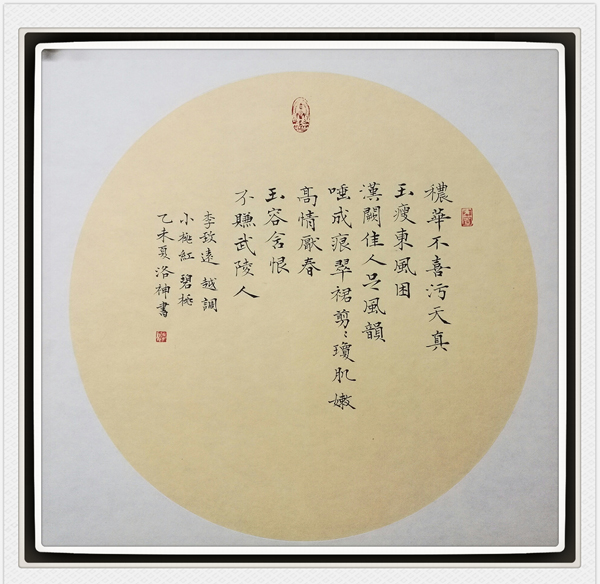 穠華不喜污天真
玉瘦東風困
漢闕佳人足風韻
唾成痕翠裙剪〻瓊肌嫩
高情厭春
玉容含恨
不賺武陵人
李致遠 越調
小桃紅 碧桃
乙未夏 洛神書